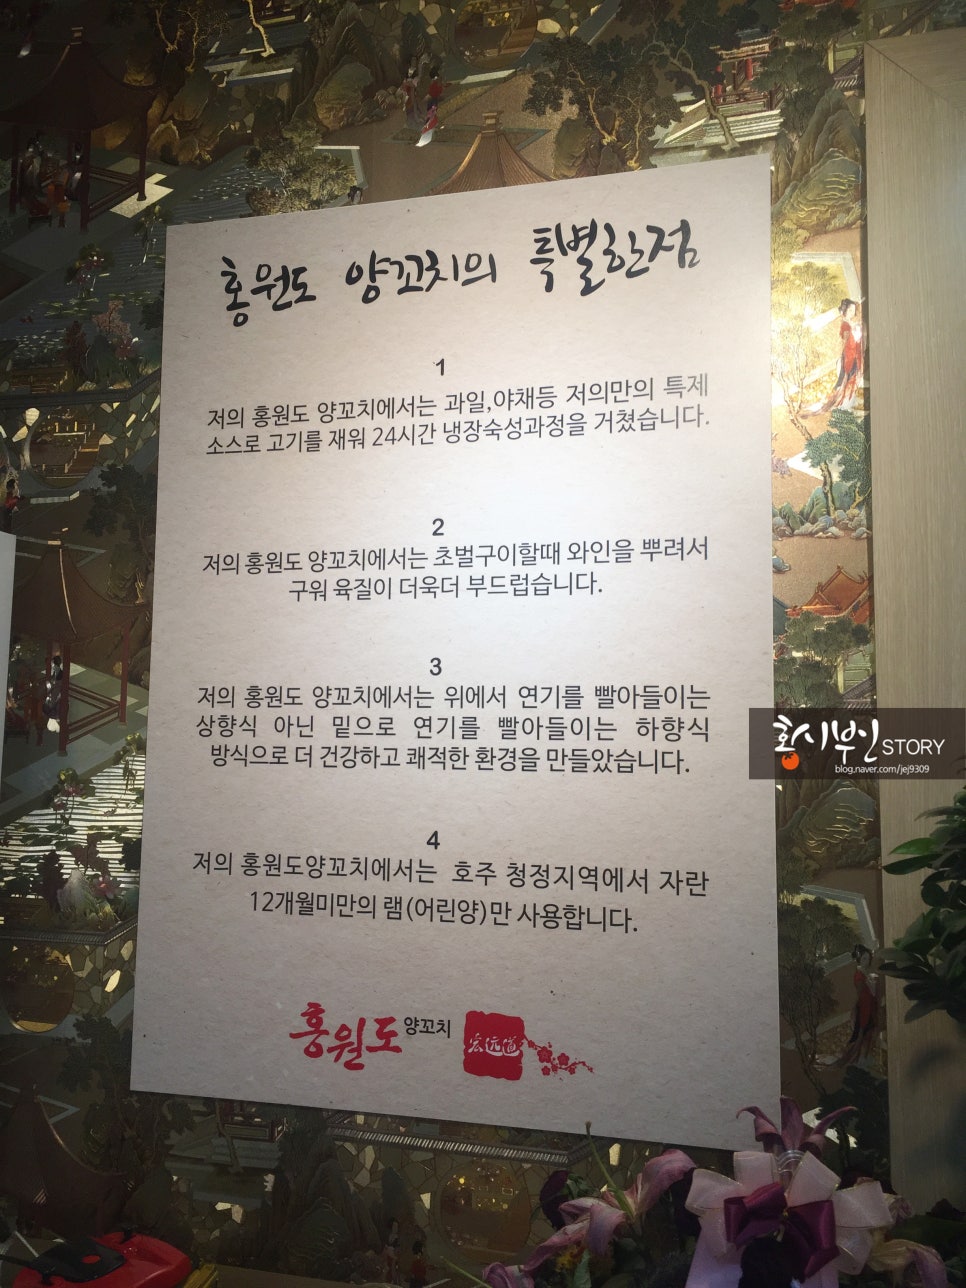 홍원도 양꼬치의 특별한점
1
저의 홍원도 양꼬치에서는 과일,야채등 저의만의 특제
소스로 고기를 재워 24시간 냉장숙성과정을 거쳤습니다.
2
저의 홍원도 양꼬치에서는 초벌구이할때 와인을 뿌려서
구워 육질이 더욱더 부드럽습니다.
3
저의 홍원도 양꼬치에서는 위에서 연기를 빨아들이는
상향식 아닌 밑으로 연기를 빨아들이는 하향식
방식으로 더 건강하고 쾌적한 환경을 만들았습니다.
4
저의 홍원도양꼬치에서는 호주 청정지역에서 자란
12개월미만의 램(어린양)만 사용합니다.
홍원도 양꼬치 宏远道
홍시부인 STORY
blog.naver.com/jej9309